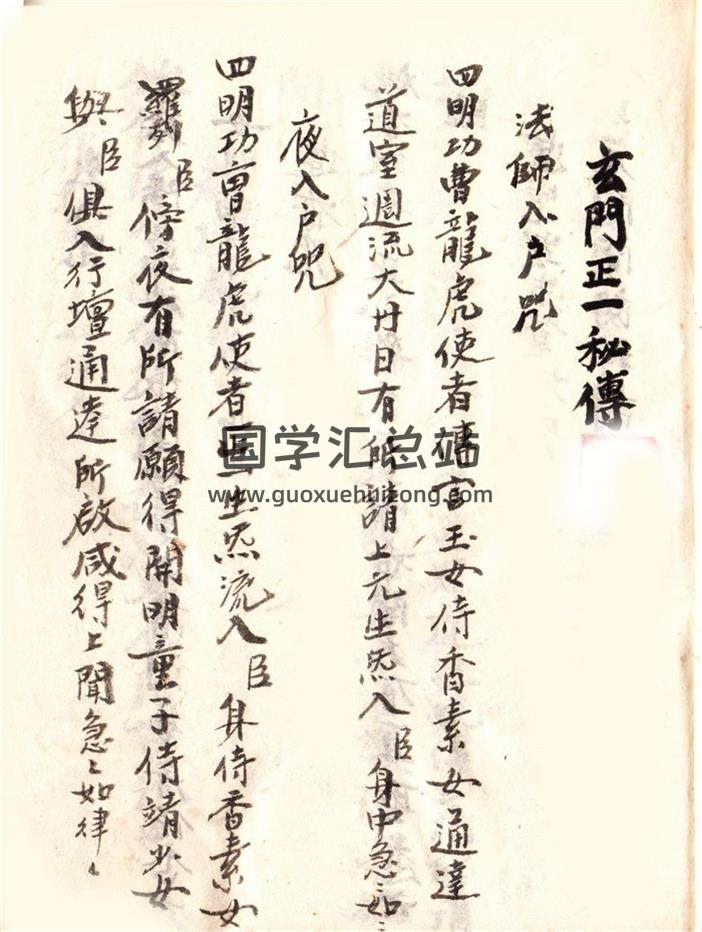 玄門正一秘傳
法師入户咒
四明功曹龍虎使者 官玉女侍香素女通達
道室週流大廿日有所請上元生炁入臣身中急〻如〻
夜入户咒
四明功曹龍虎使者 生炁流入臣身侍香素女
羅列臣傍夜有所請願得開明童子侍靖少女
與臣俱入行壇通達所啟咸得上聞急〻如律〻
国学汇总站
www.guoxuehuizong.com